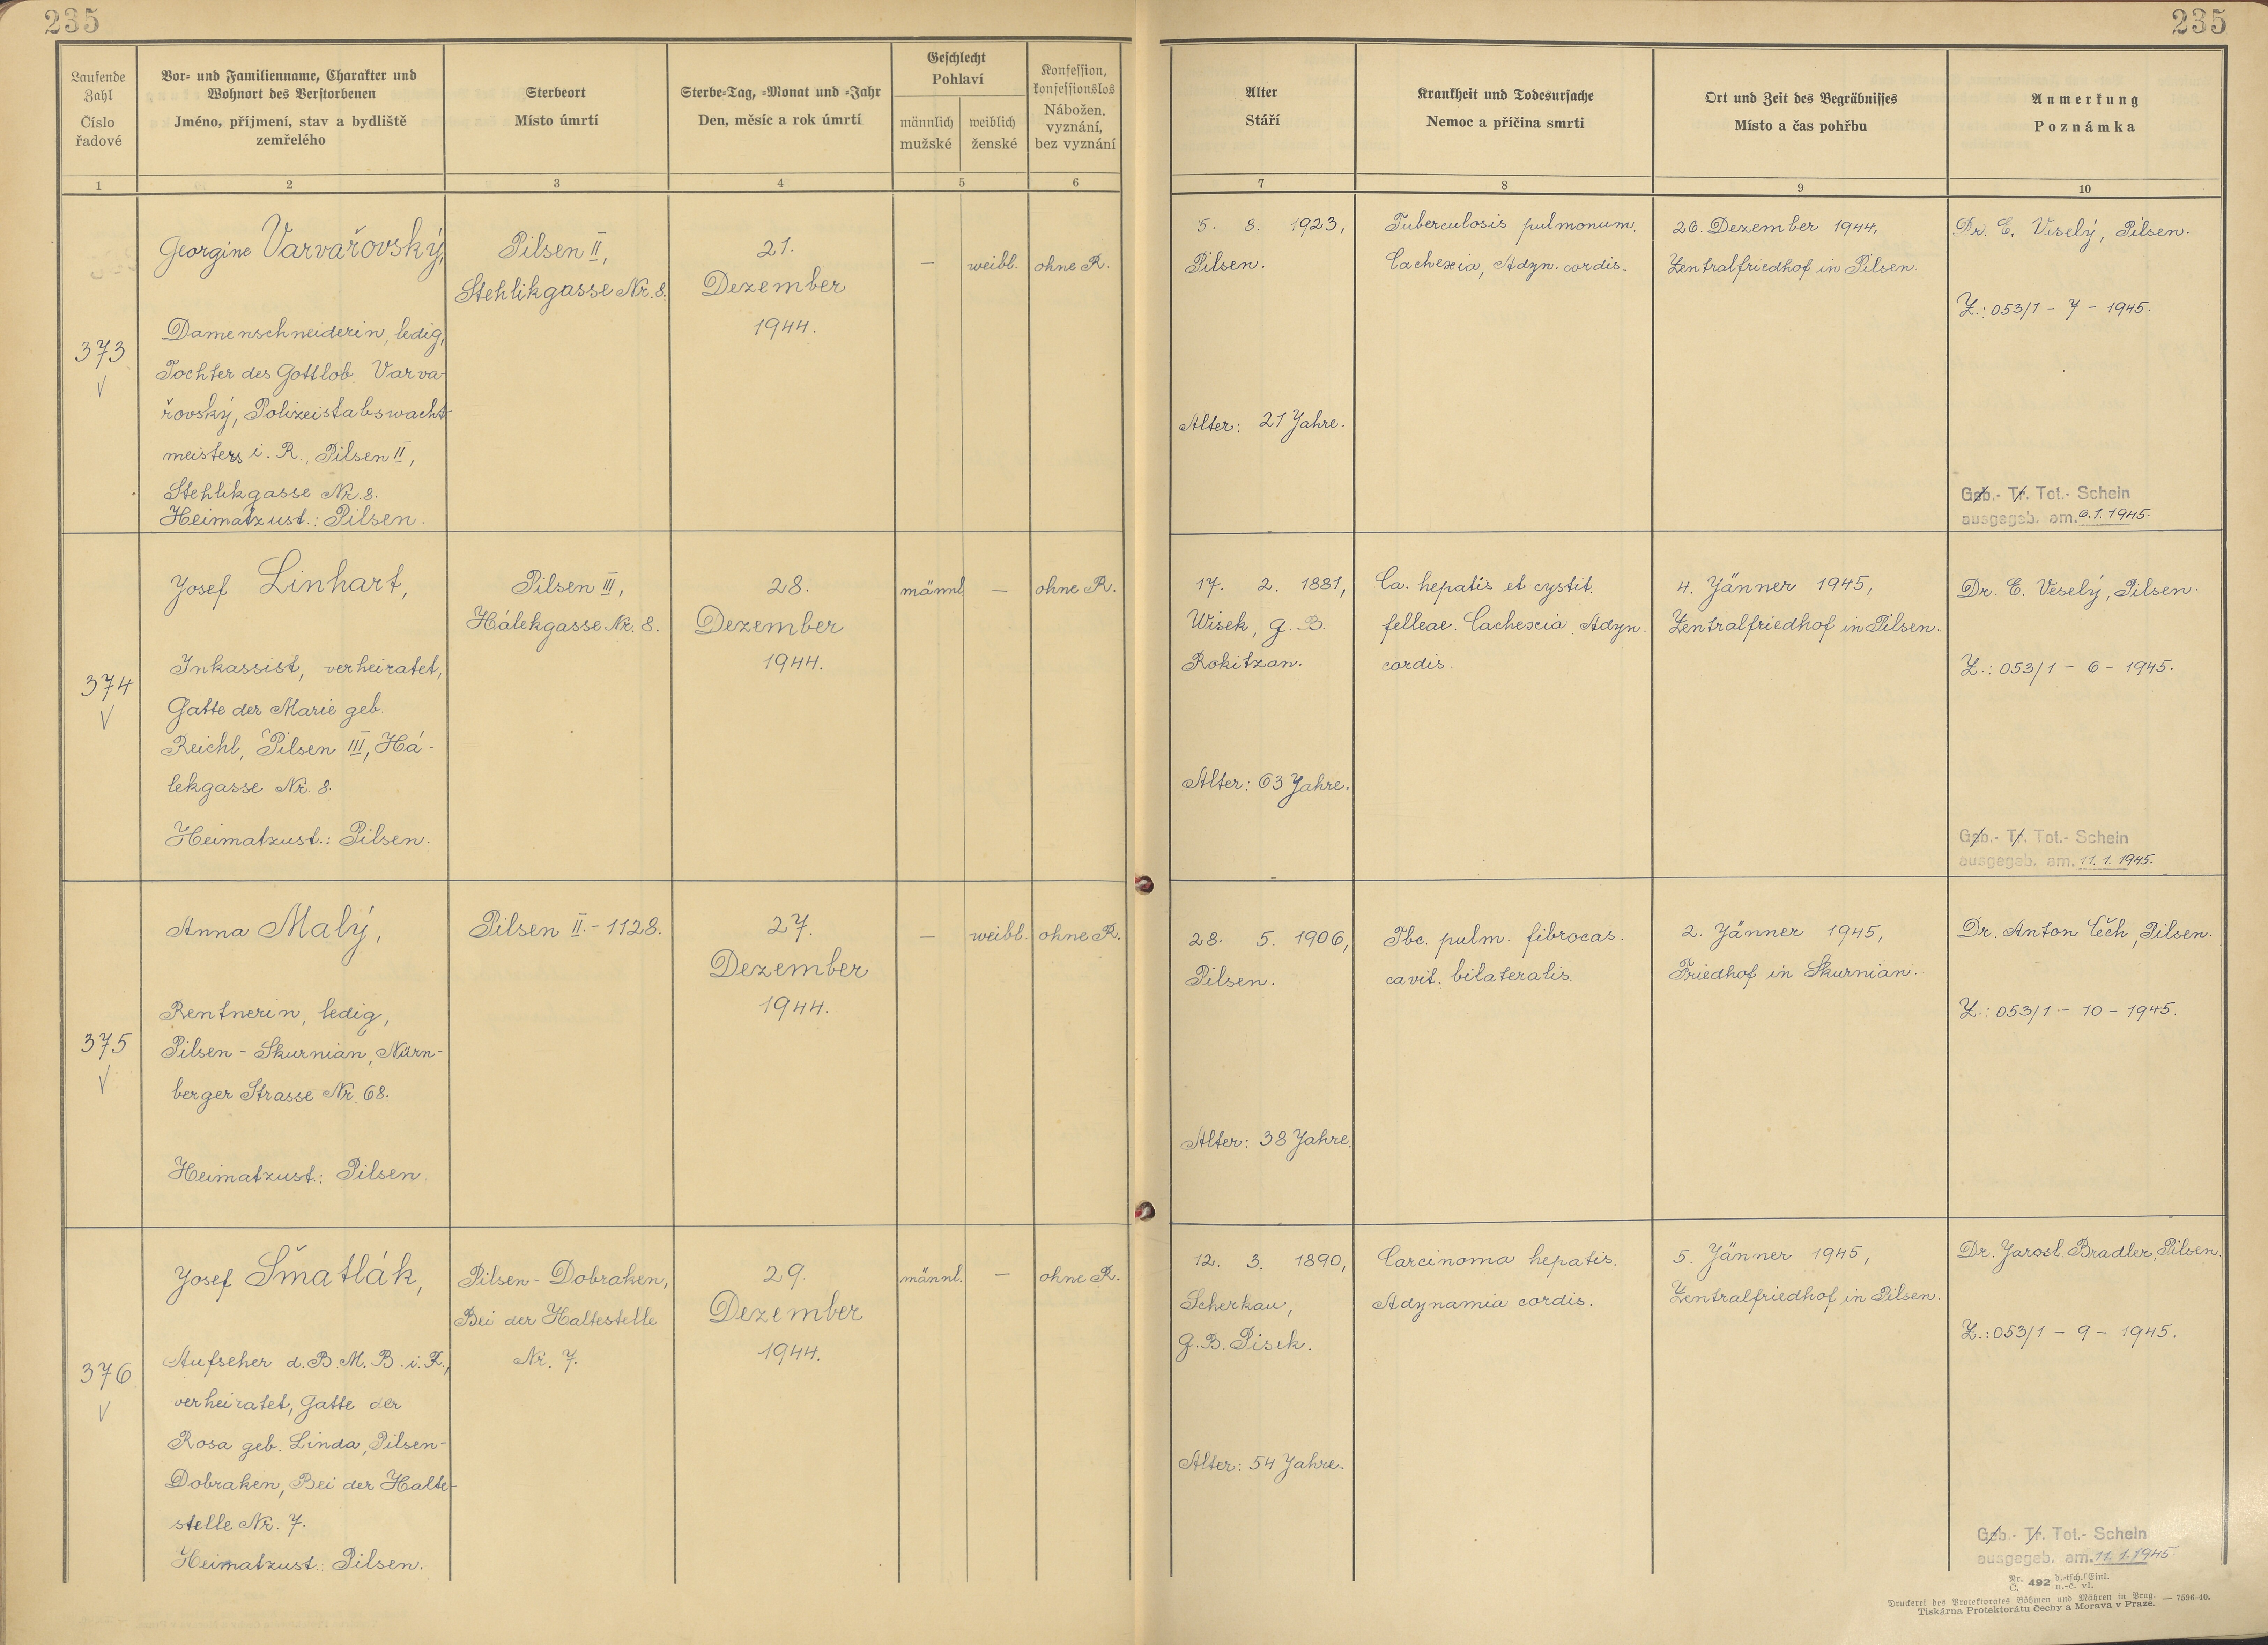 235
235
Laufende Zahl
Číslo řadové
Vor- und Familienname, Charakter und
Wohnort des Verstorbenen
Jméno, příjmení, stav a bydliště
zemřelého
Sterbeort
Místo úmrtí
Sterbe-Tag, -Monat und -Jahr
Den, měsíc a rok úmrtí
Geschlecht
Pohlaví
männlich
mužské
weiblich
ženské
Konfession,
konfessionslos
Nábožen.
vyznání,
bez vyznání
Alter
Stáří
Krankheit und Todesursache
Nemoc a příčina smrti
Ort und Zeit des Begräbnisses
Místo a čas pohřbu
Anmerkung
Poznámka
1
2
3
4
5
6
7
8
9
10
373
V
Georgine Varvařovský,
Damenschneiderin, ledig,
Tochter des Gottlob Varva-
řovský, Polizeistabswacht-
meisters i. R., Pilsen II,
Stehlikgasse Nr. 8.
Heimatzust.: Pilsen.
Pilsen II,
Stehlikgasse Nr. 8.
21.
Dezember
1944.
—
weibl.
ohne R.
5. 8. 1923,
Pilsen.
Alter: 21 Jahre.
Tuberculosis pulmonum.
Cachexia, Adyn. cordis.
26. Dezember 1944,
Zentralfriedhof in Pilsen.
Dr. E. Veselý, Pilsen.
Z.: 053/1 - 7 - 1945.
Geb.- Tr. Tot.- Schein
ausgegeb. am. 6.1.1945.
374
V
Josef Linhart,
Inkassist, verheiratet,
Gatte der Marie geb.
Reichl, Pilsen III, Há-
lekgasse Nr. 8.
Heimatzust.: Pilsen.
Pilsen III,
Hálekgasse Nr. 8.
28.
Dezember
1944.
männl.
—
ohne R.
17. 2. 1881,
Wisek, G. B.
Rokitzan.
Alter: 63 Jahre.
Ca. hepatis et cystit.
felleae. Cachexia Adyn.
cordis.
4. Jänner 1945,
Zentralfriedhof in Pilsen.
Dr. E. Veselý, Pilsen.
Z.: 053/1 - 6 - 1945.
Geb.- Tr. Tot.- Schein
ausgegeb. am. 11.1.1945.
375
V
Anna Malý,
Rentnerin, ledig,
Pilsen - Skurnian, Nürn-
berger Strasse Nr. 68.
Heimatzust.: Pilsen.
Pilsen II. - 1128.
27.
Dezember
1944.
—
weibl.
ohne R.
28. 5. 1906,
Pilsen.
Alter: 38 Jahre.
Tbc. pulm. fibrocas.
cavit. bilateralis.
2. Jänner 1945,
Friedhof in Skurnian.
Dr. Anton Čech, Pilsen.
Z.: 053/1 - 10 - 1945.
376
V
Josef Šmatlák,
Aufseher d. B. M. B. i. R.,
verheiratet, Gatte der
Rosa geb. Linda, Pilsen-
Dobraken, Bei der Halte-
stelle Nr. 7.
Heimatzust.: Pilsen.
Pilsen - Dobraken,
Bei der Haltestelle
Nr. 7.
29.
Dezember
1944.
männl.
—
ohne R.
12. 3. 1890,
Scherkau,
G. B. Pisek.
Alter: 54 Jahre.
Carcinoma hepatis.
Adynamia cordis.
5. Jänner 1945,
Zentralfriedhof in Pilsen.
Dr. Jarosl. Bradler, Pilsen.
Z.: 053/1 - 9 - 1945.
Geb.- Tr. Tot.- Schein
ausgegeb. am. 11.1.1945.
Nr. Č. 492 d.-tsch. Einl. n.-č. vl.
Druckerei des Protektorates Böhmen und Mähren in Prag. — 7596-40.
Tiskárna Protektorátu Čechy a Morava v Praze.